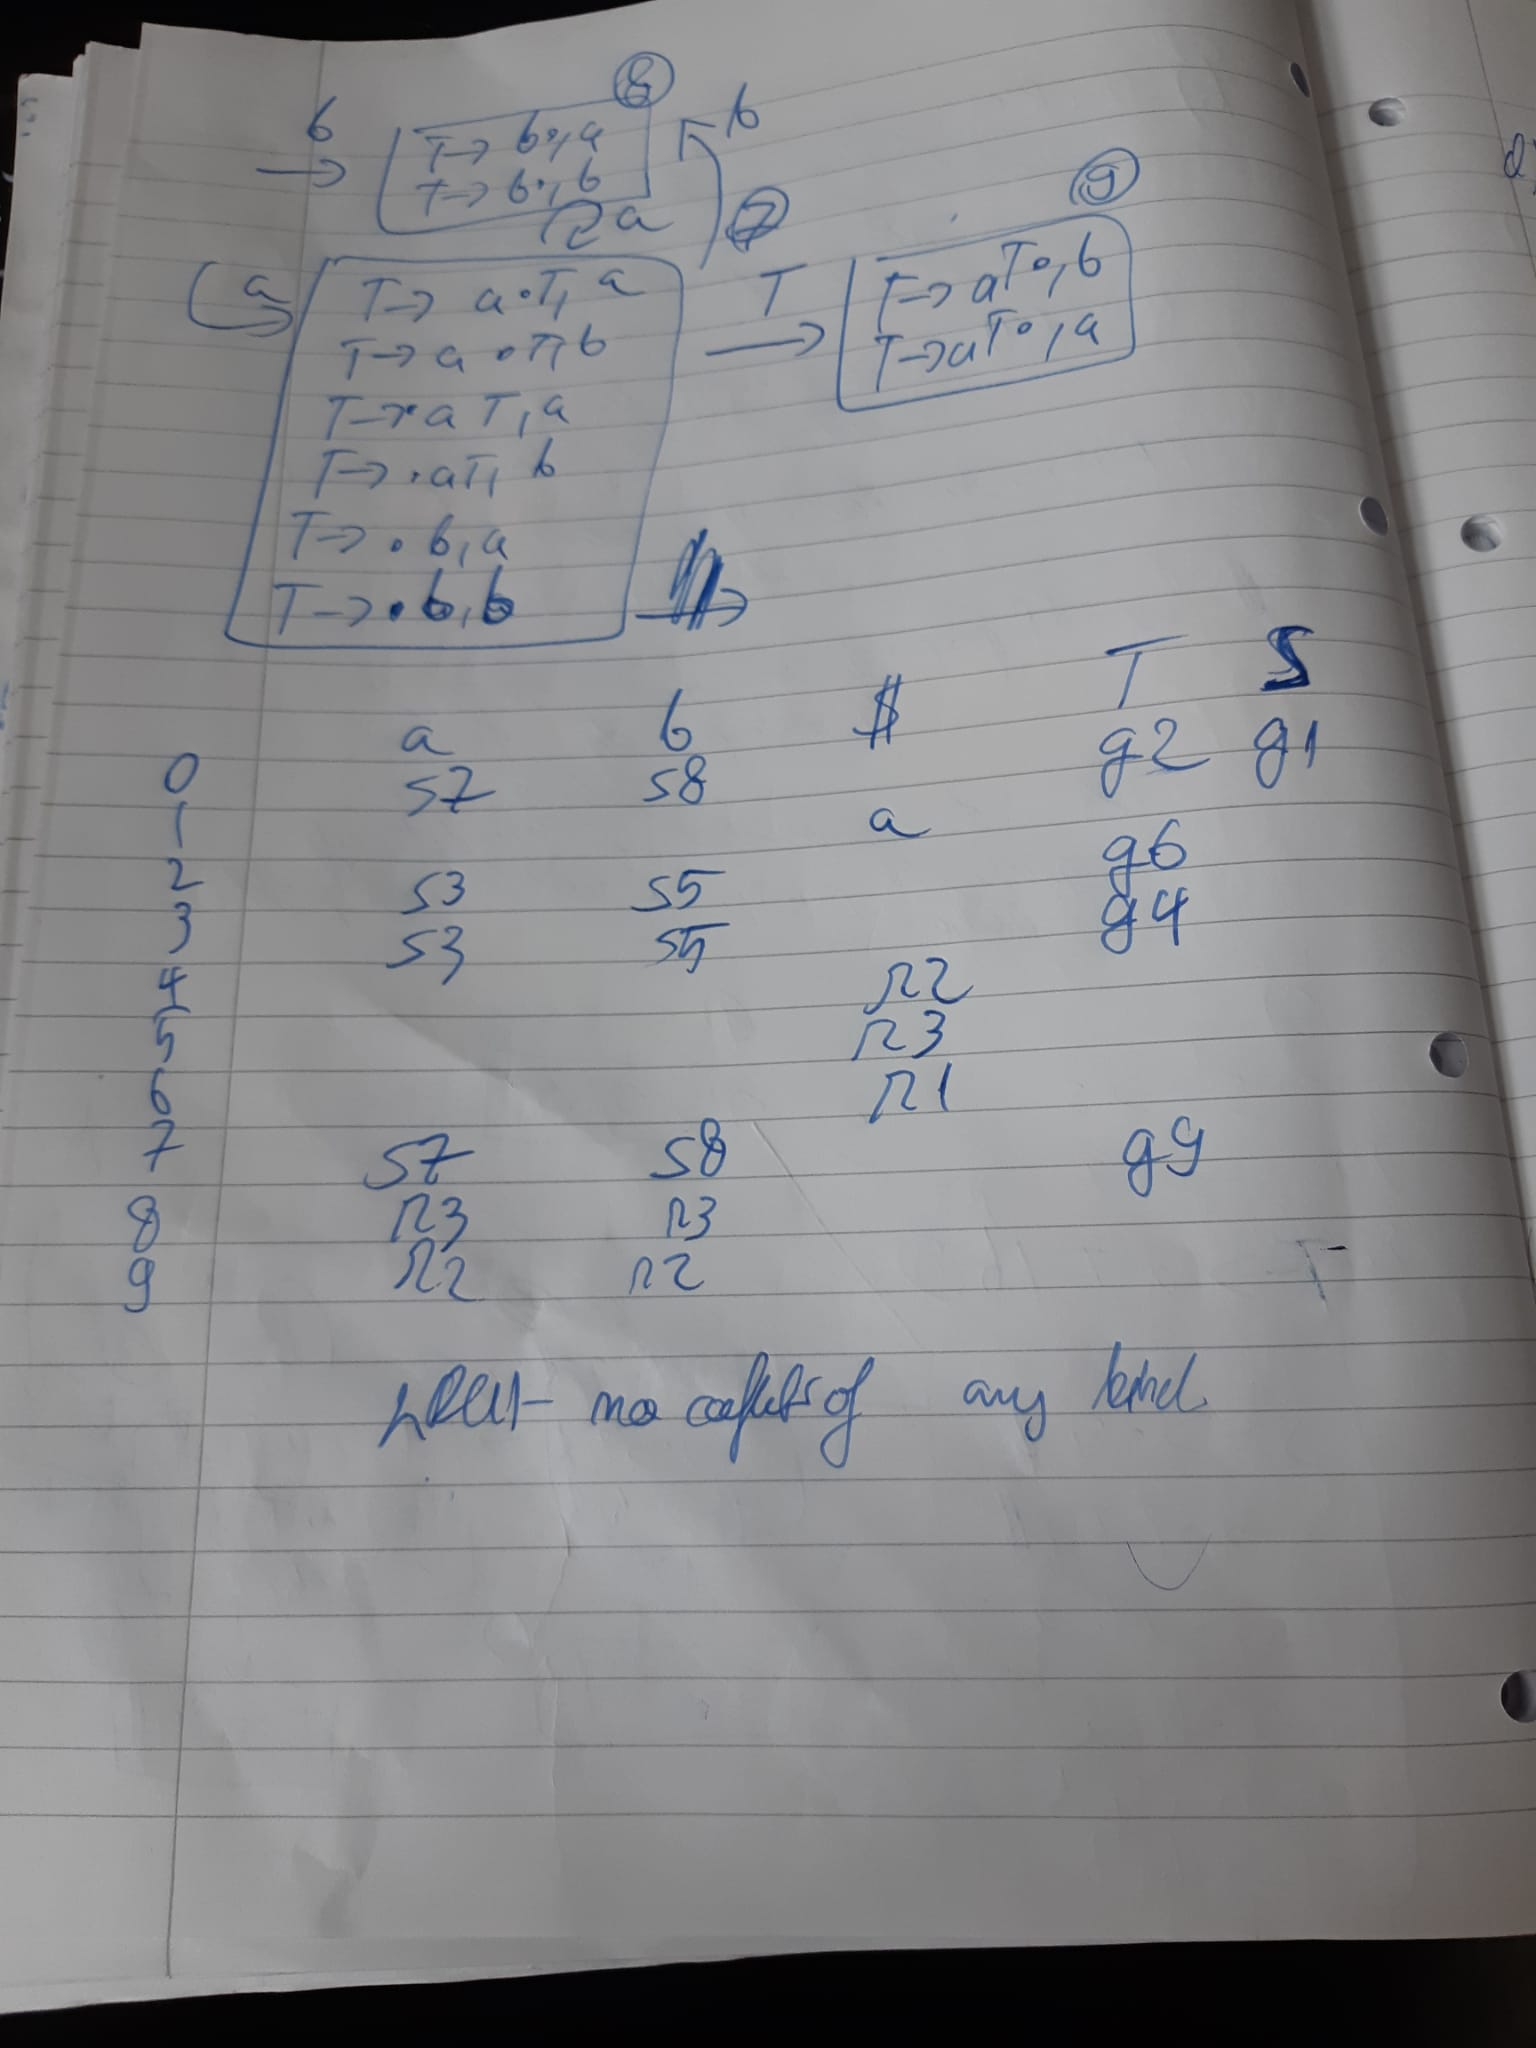 b
8
T→ b•, a
T→ b•, b
b
a
a
7
9
T→ a•T, a
T→ a•T, b
T→•a T, a
T→ •aT, b
T→ •b, a
T→ •b, b
T
T→ aT•, b
T→ aT•, a
a b $ T S
0 s7 s8 g2 g1
1 a
2 s3 s5 g6
3 s3 s5 g4
4 r2
5 r3
6 r1
7 s7 s8 g9
8 r3 r3
9 r2 r2
no of any kind